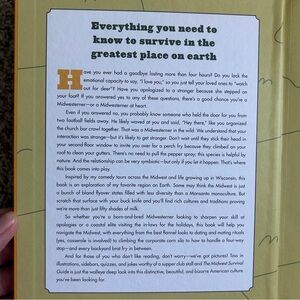 Everything you need to
know to survive in the
greatest place on earth
Have you ever had a goodbye lasting more than four hours? Do you lack the
emotional capacity to say, "I love you," so you just tell your loved ones to "watch
out for deer"? Have you apologized to a stranger because she stepped on
your foot? If you answered yes to any of these questions, there's a good chance you're a
Midwesterner—or a Midwesterner at heart.
Even if you answered no, you probably know someone who held the door for you from
two football fields away. He likely waved at you and said, "Hey there," like you organized
the church bar crawl together. That was a Midwesterner in the wild. We understand that your
interaction was strange—but it's likely to get stranger. Don't wait until they stick their head in
your second-floor window to invite you for a perch fry because they climbed on your
roof to clean your gutters. There's no need to pull the pepper spray; this species is helpful by
nature. And the relationship can be very symbiotic—but only if you let it happen. That's where
this book comes into play.
Inspired by my comedy tours across the Midwest and life growing up in Wisconsin, this
book is an exploration of my favorite region on Earth. Some may think the Midwest is just
a bunch of bland flyover states filled with less diversity than a Monsanto monoculture. But
scratch that surface with your buck knife and you'll find rich cultures and traditions proving
we're more than just fifty shades of milk.
So whether you're a born-and-bred Midwesterner looking to sharpen your skill at
apologies or a coastal elite visiting the in-laws for the holidays, this book will help you
navigate the Midwest, with everything from the best flannel looks to dating and mating rituals
(yes, casserole is involved) to climbing the corporate corn silo to how to handle a four-way
stop—and every backyard brat fry in between.
And for those of you who don't like reading, don't worry—we've got pictures! Jam in
illustrations, sidebars, quizzes, and jokes worthy of a supper club stall and The Midwest Survival
Guide is just the walleye deep look into this distinctive, beautiful, and bizarre American culture
you've been looking for.